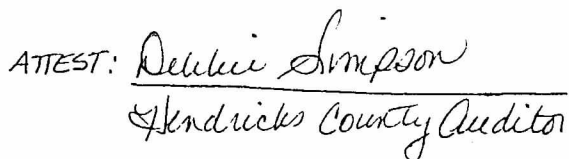 ATTEST: Debbie Simpson
Hendricks County Auditor